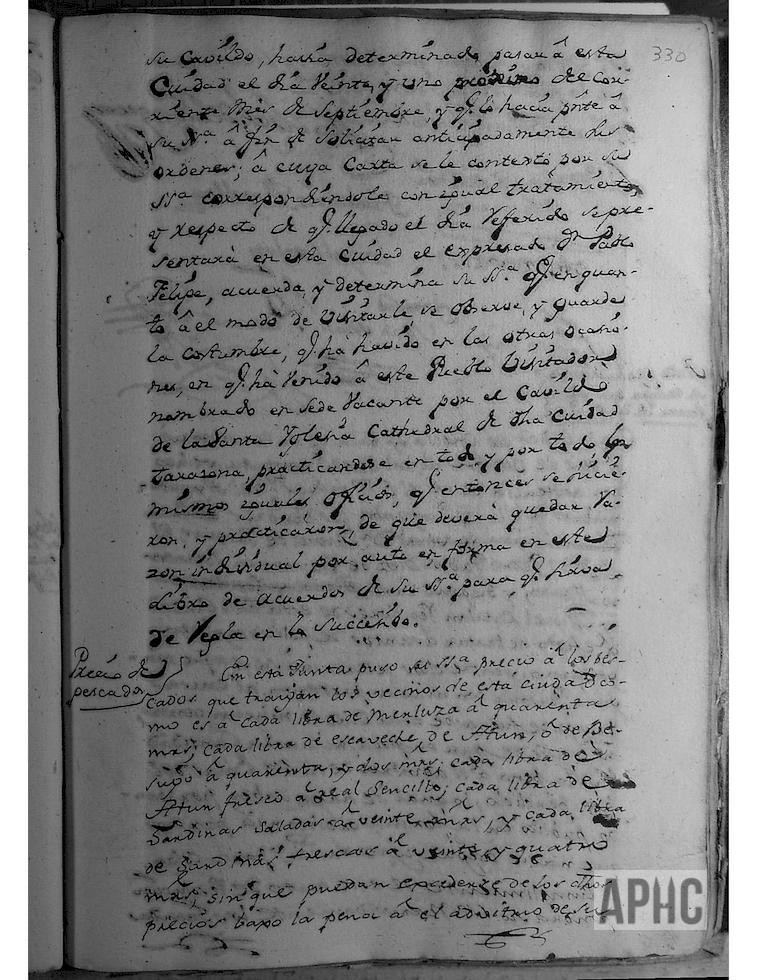 330
su Cavildo, havia determinado pasar â esta
Ciudad el dia Veinte, y uno proximo del Cor-
riente Mes de Septiembre, y q.e lo hacia pnte â
su Ss.a â fin de Solicitar anticipadamente sus
ordenes; â cuya Carta se le contextô por su
Ss.a correspondiendole con igual tratamiento,
y respecto de q.e llegado el dia referido se pre-
sentarà en esta Ciudad el expresado Dn Pablo
Felipe, acuerda, y determina su Ss.a q.e en quan-
to â el modo de Visitarle, se observe, y guarde
la costumbre, q.e hà havido en las otras ocasio-
nes, en q.e hà Venido â este Pueblo Visitador
nombrado en Sede Vacante por el Cavildo
de la Santa Yglesia Cathedral de dha Ciudad
Tarazona, practicandose en todo, y por todo los
mismos iguales oficios, q.e entonces se hicie-
ron, y practicaron, de que deverà quedar ra-
zon individual por auto en forma en este
Libro de Acuerdos de su Ss.a para q.e sirva
de Regla en lo succesibo.
Precio de
pescados
En esta Junta puso su Ss.a precio â los pes-
cados que traigan los vecinos de esta ciudad co-
mo es â cada libra de Merluza â quarenta
mrs; cada libra de escaveche de Atun, ô de Be-
sugo â quarenta, y dos mrs; cada libra de
Atun fresco â real Sencillo; cada libra de
Sardinas Saladas â veinte mrs, y cada libra
de Sardinas frescas â veinte y quatro
mrs; sin que puedan excederse de los dhos
precios bajo la pena â el advitrio de su
APHC